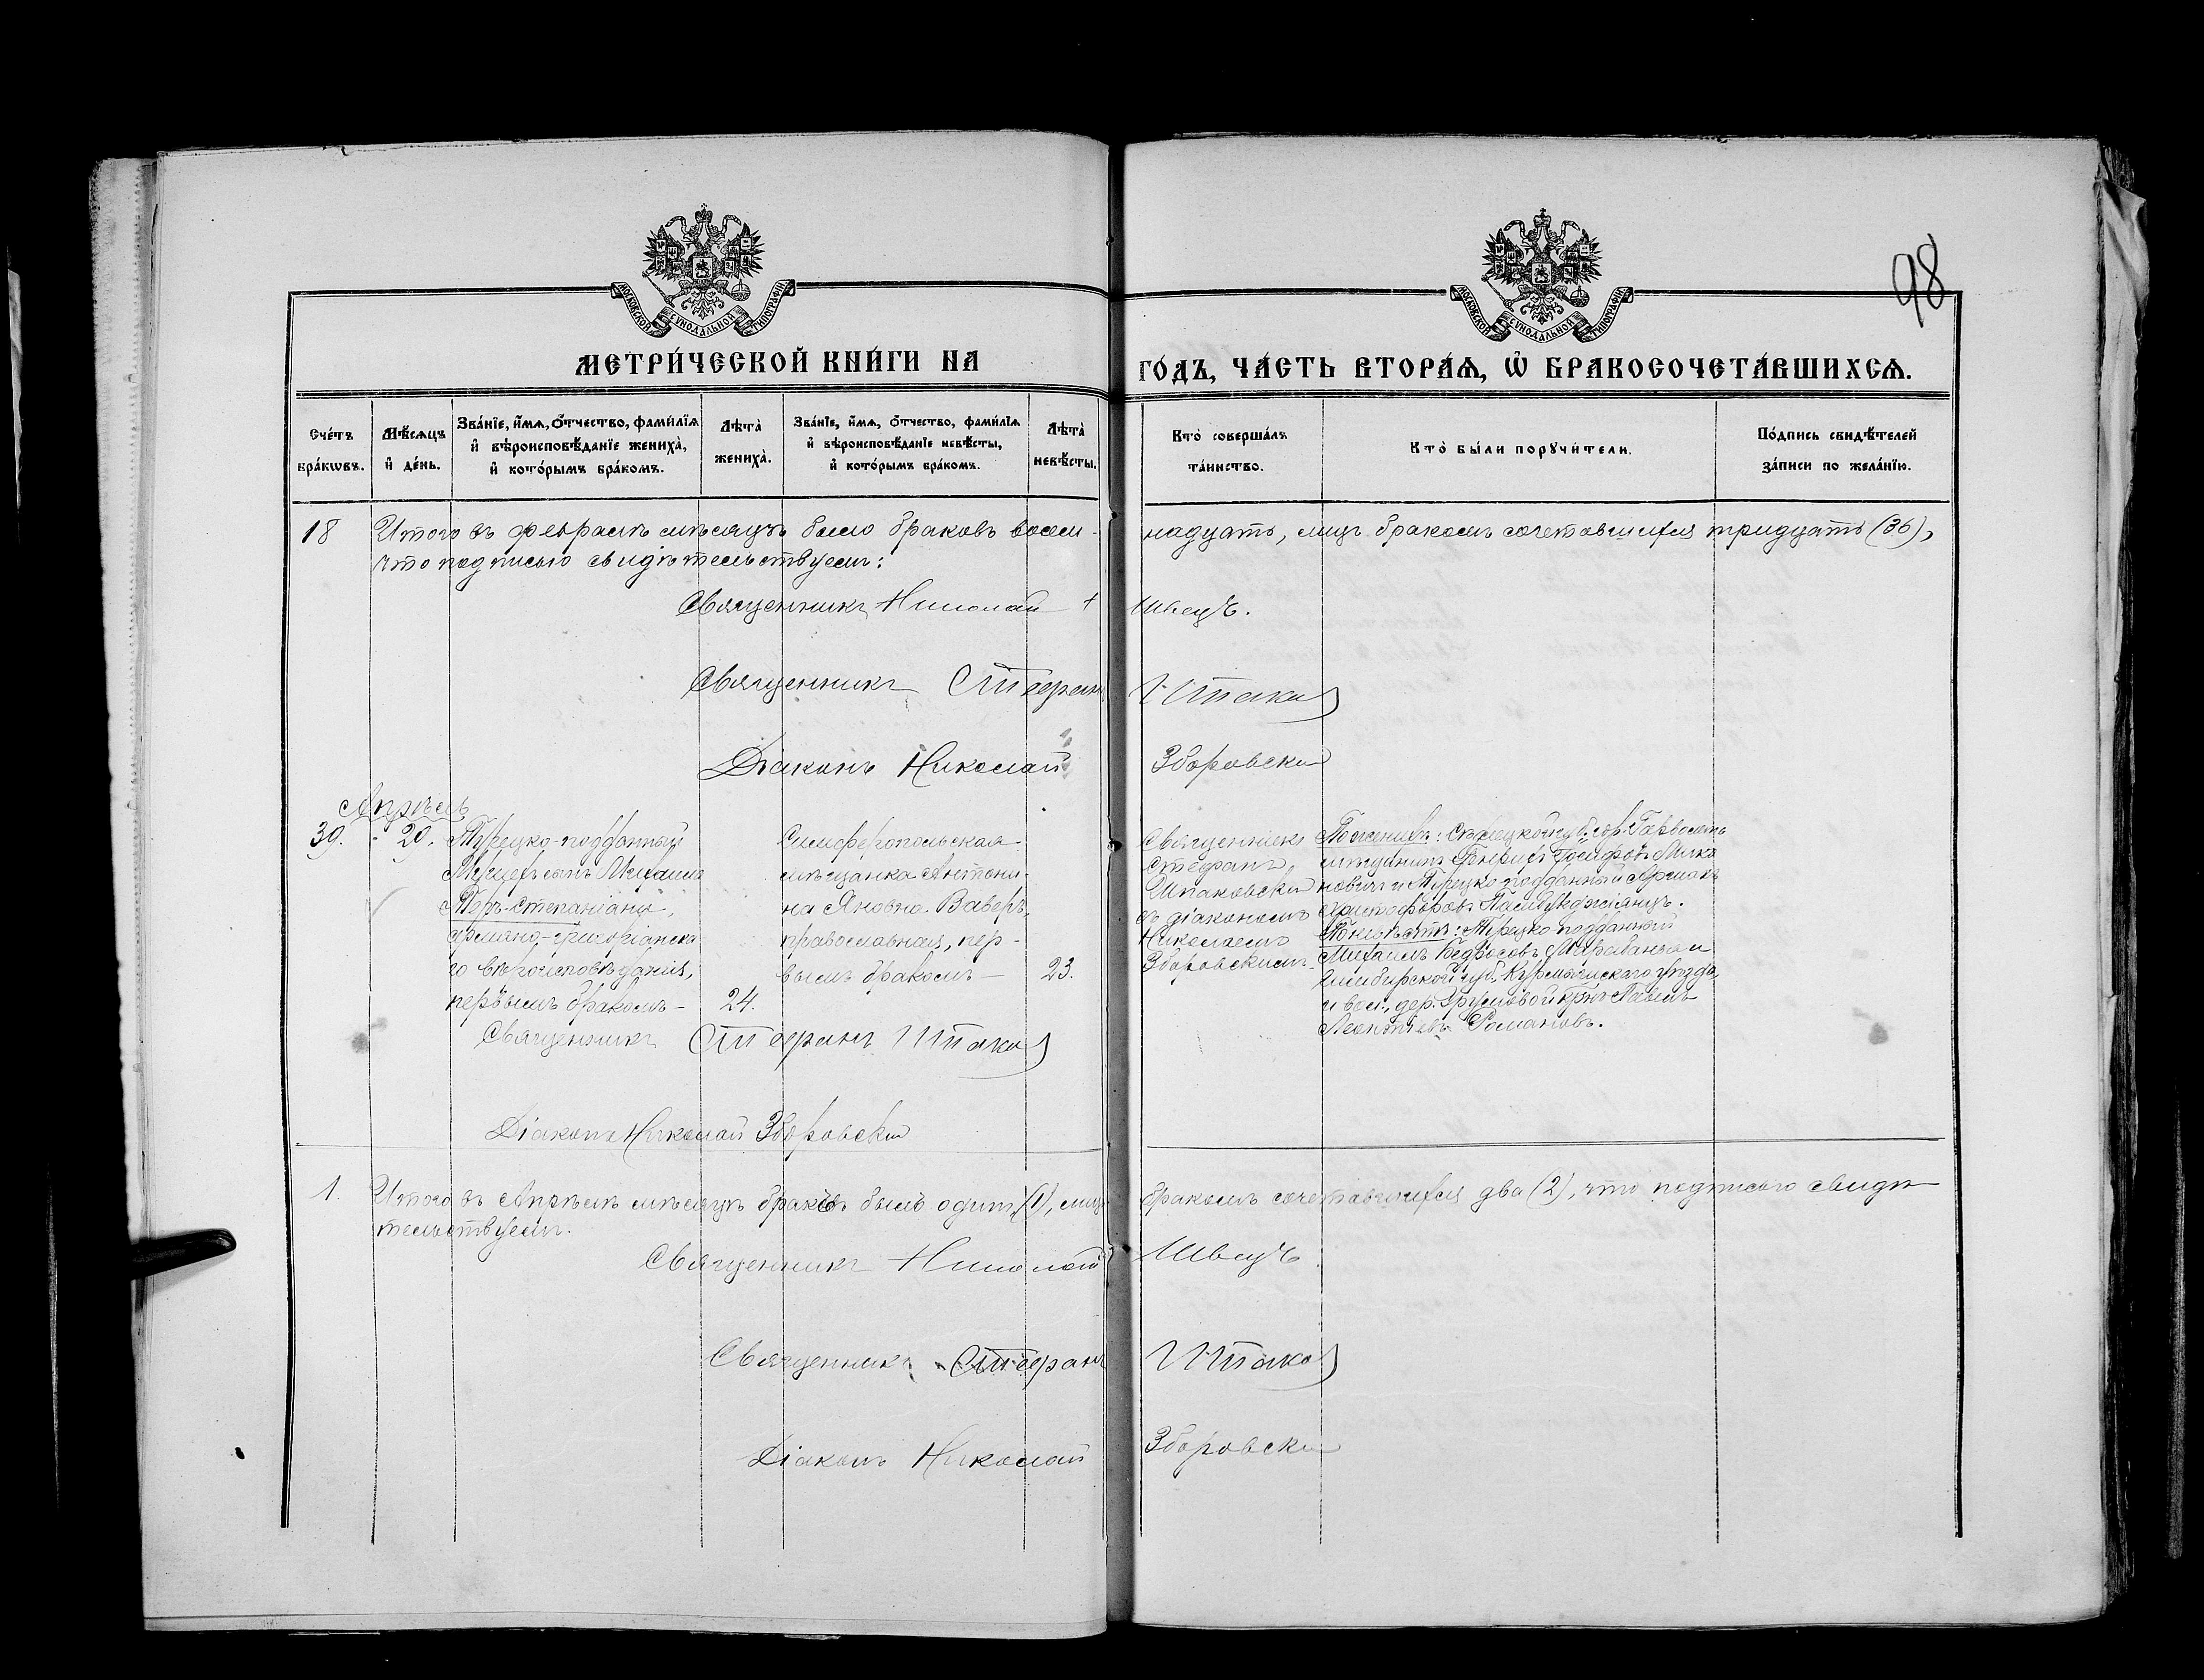 98
МОСКОВСКОЙ СѴНОДАЛЬНОЙ ТИПОГРАФІИ
МОСКОВСКОЙ СѴНОДАЛЬНОЙ ТИПОГРАФІИ
МЕТРИ́ЧЕСКОЙ КНИ́ГИ НА ГО́ДЪ, ЧА́СТЬ ВТОРА́Ѧ, Ѽ БРАКОСОЧЕТА́ВШИХСѦ.
Сче́тъ бра́кѡвъ.
Мѣ́сѧцъ и҆ де́нь.
Зва́нїе, и҆́мѧ, ѻ҆́тчество, фами́лїѧ
и҆ вѣроисповѣ́данїе жениха̀,
и҆ кото́рымъ бра́комъ.
Лѣта̀ жениха̀.
Зва́нїе, и҆́мѧ, ѻ҆́тчество, фами́лїѧ
и҆ вѣроисповѣ́данїе невѣ́сты,
и҆ кото́рымъ бра́комъ.
Лѣта̀ невѣ́сты.
Кто̀ соверша́лъ та́инство.
Кто̀ бы́ли порꙋчи́тели.
По́дпись свидѣ́телей за́писи по жела́нїю.
18 Итого въ февралѣ мѣсяцѣ было браковъ восем-надцать, лицъ бракомъ сочетавшихся тридцать (36),
что подписью свидѣтельствуемъ:
Священникъ Николай Швецъ.
Священникъ Стефанъ
Діаконъ Николай Зборовскій
Апрѣль
39. 20. Турецко-подданный
сынъ
Теръ-Степаніанцъ,
армяно-григоріанска
го вѣроисповѣданія,
первымъ бракомъ – 24.
Симферопольская
мѣщанка Антони-
на Яновна Ваверъ,
православная, пер-
вымъ бракомъ – 23.
Священникъ
Стефанъ
съ діакономъ
Николаемъ
Зборовскимъ.
По женихѣ: губ. гор.
мѣщанинъ Іосифовъ
и Турецко подданный
Христофоровъ
По невѣстѣ: Турецко подданный
Михаилъ Бедросовъ и
Симбирской губ., Курмышскаго уѣзда,
дер. кр-нъ Павелъ
Леонтіевъ Романовъ.
Священникъ Стефанъ
Діаконъ Николай Зборовскій
1. Итого въ Апрѣлѣ мѣсяцѣ браковъ былъ одинъ (1), лицъ бракомъ сочетавшихся два (2), что подписью свидѣ-
тельствуемъ.
Священникъ Николай Швецъ
Священникъ Стефанъ
Діаконъ Николай Зборовскій